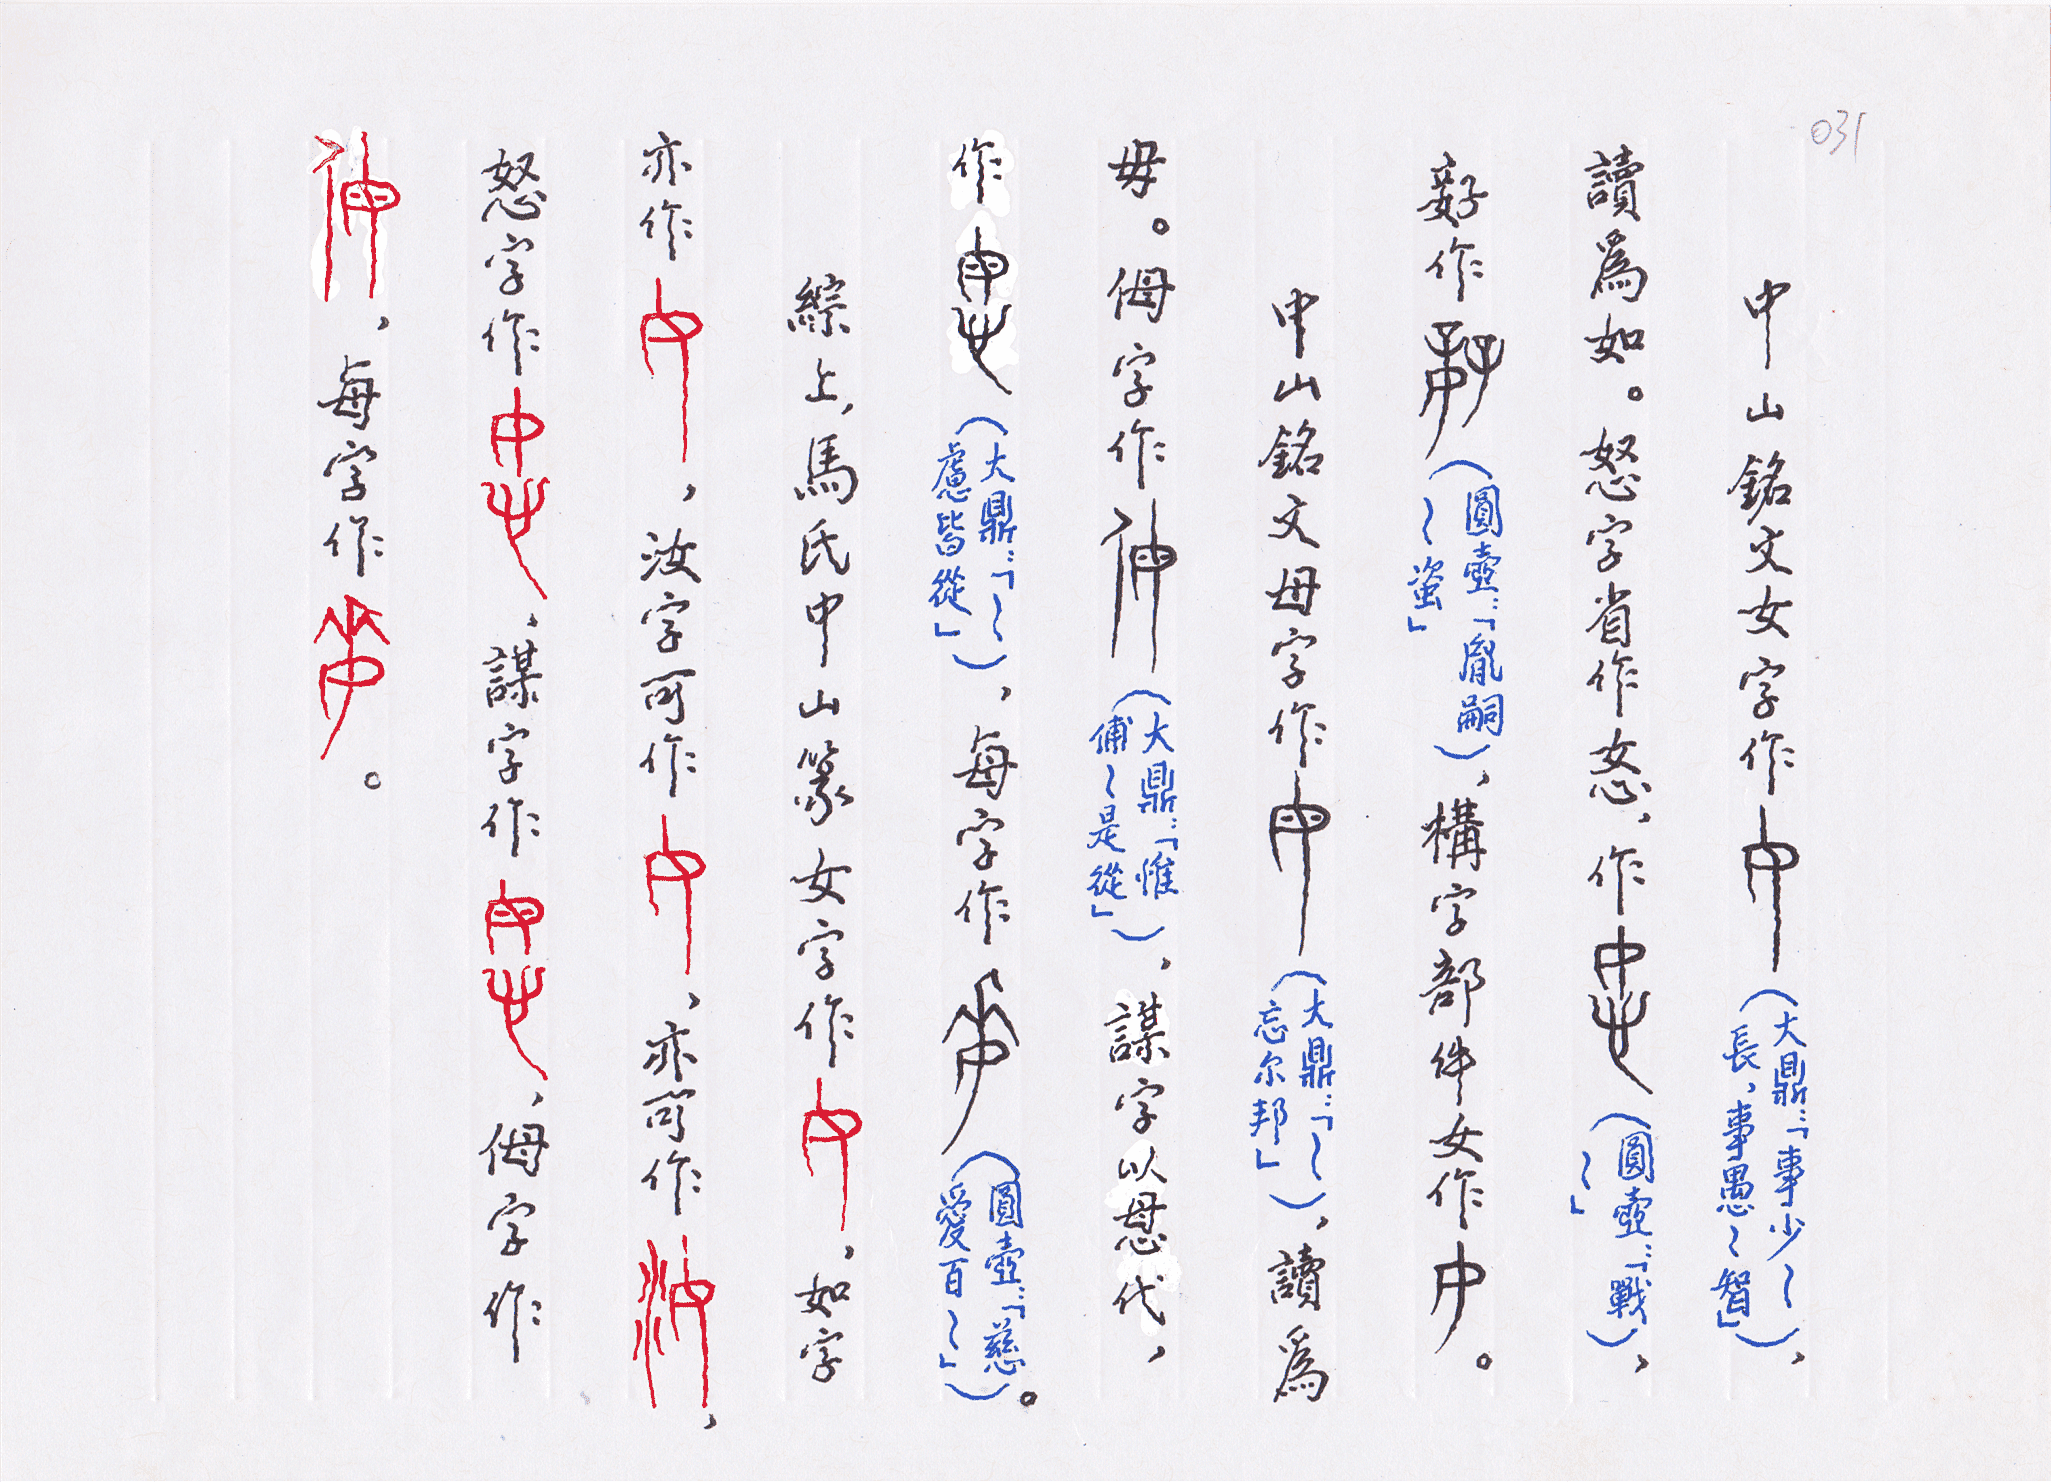 031
中山銘文女字作(大鼎:「事少〜長,事愚〜智」),
讀爲如。怒字省作㤅,作(圓壺:「戰〜〜」),
作(圓壺:「胤嗣〜盗」),構字部件女作。
中山銘文母字作(大鼎:「〜忘尔邦」),讀爲
毋。侮字作(大鼎:「惟俌〜是從」),謀字以㥄代,
作(大鼎:「〜慮皆從」),每字作(圓壺:「慈愛百〜」)。
綜上,馬氏中山篆女字作,如字
亦作,汝字可作,亦可作,
怒字作,謀字作,侮字作
,每字作。